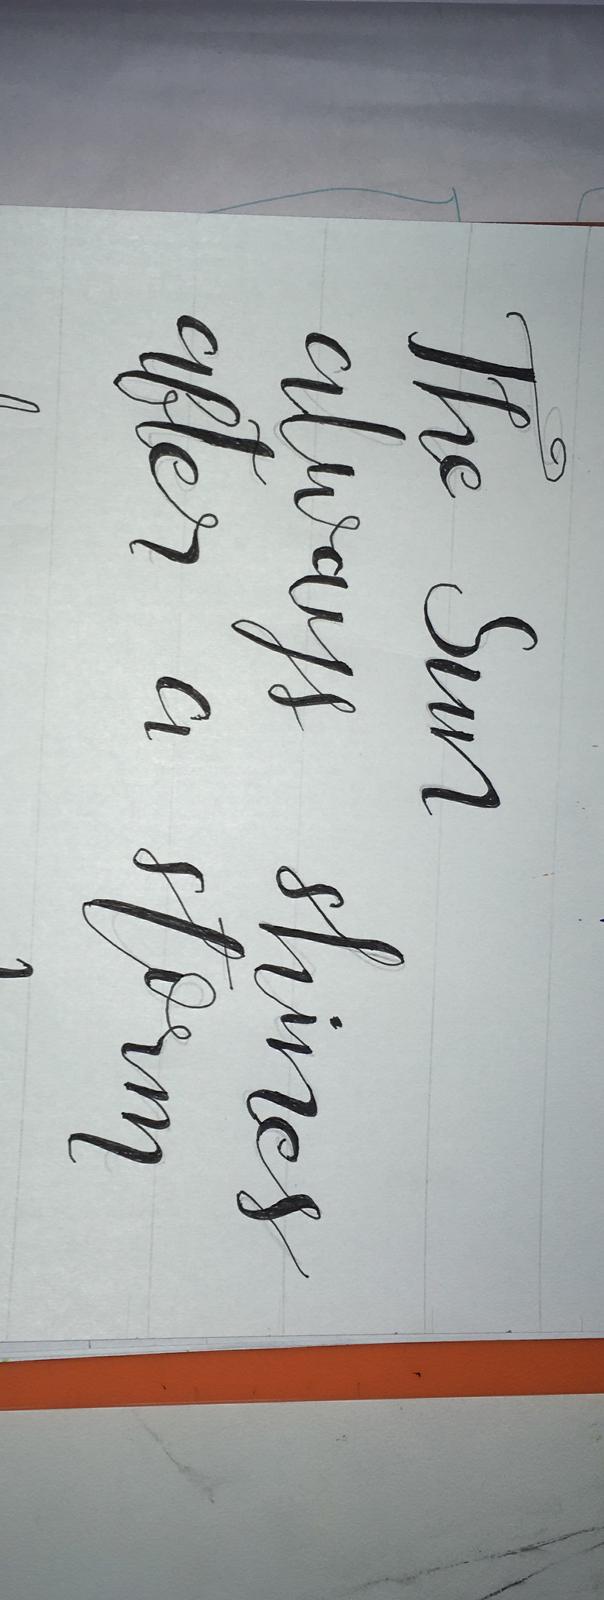 The Sun
always shines
after a storm